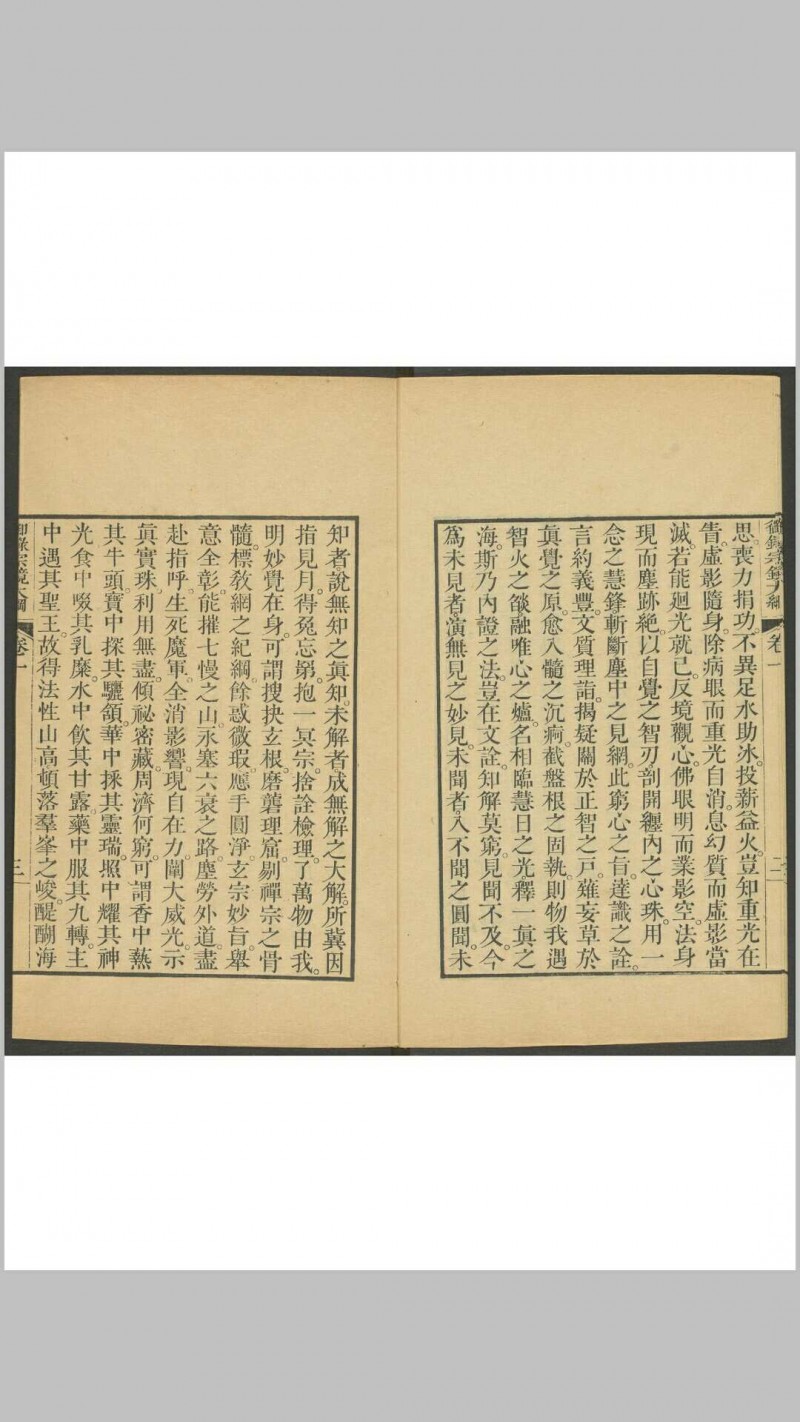 御錄宗鏡大綱 卷一 二
思。喪力捐功。不異足水助冰。投薪益火。豈知重光在
眚。虛影隨身。除病眼而重光自消。息幻質而虛影當
滅。若能廻光就己。反境觀心。佛眼明而業影空。法身
現而塵跡絕。以自覺之智刃。剖開纒內之心珠。用一
念之慧鋒。斬斷塵中之見網。此窮心之旨。達識之詮。
言約義豐。文質理詣。揭疑關於正智之戸。薙妄草於
眞覺之原。愈入髓之沉痾。截盤根之固執。則物我遇
智火之燄。融唯心之爐。名相臨慧日之光。釋一眞之
海。斯乃內證之法。豈在文詮。知解莫窮。見聞不及。今
爲未見者。演無見之妙見。未聞者。入不聞之圓聞。未
知者。說無知之眞知。未解者。成無解之大解。所冀因
指見月。得兔忘罤。抱一冥宗。捨詮檢理。了萬物由我。
明妙覺在身。可謂搜抉玄根。磨礲理窟。剔禪宗之骨
髓。標敎網之紀綱。餘惑微瑕。應手圓淨。玄宗妙旨。舉
意全彰。能摧七慢之山。永塞六衰之路。塵勞外道。盡
赴指呼。生死魔軍。全消影響。現自在力。闡大威光。示
眞實珠。利用無盡。傾祕密藏。周濟何窮。可謂香中爇
其牛頭。寶中探其驪頷。華中採其靈瑞。照中耀其神
光。食中啜其乳糜。水中飮其甘露。藥中服其九轉。主
中遇其聖王。故得法性山高。頓落羣峯之峻。醍醐海
御錄宗鏡大綱 卷一 三